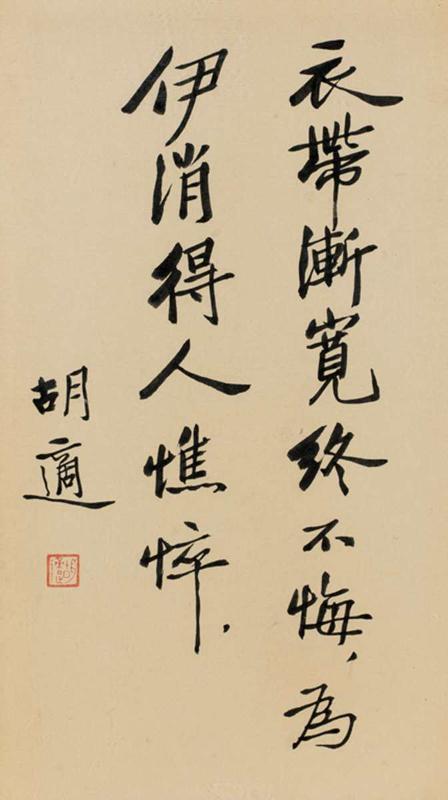 衣帶漸寬終不悔，為
伊消得人憔悴．
胡適